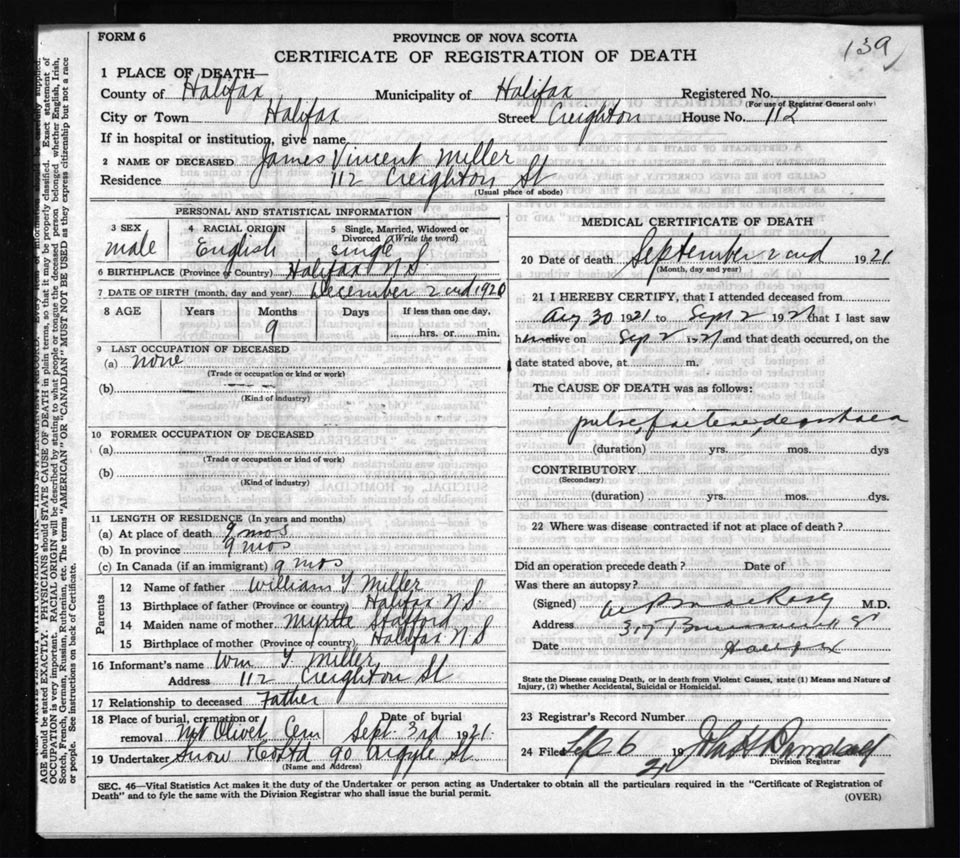 FORM 6
PROVINCE OF NOVA SCOTIA
139
CERTIFICATE OF REGISTRATION OF DEATH
1 PLACE OF DEATH—
County of Halifax Municipality of Halifax Registered No.
(For use of Registrar General only)
City or Town Halifax Street Creighton House No. 112
If in hospital or institution, give name
2 NAME OF DECEASED James Vincent Miller
Residence 112 Creighton St
(Usual place of abode)
PERSONAL AND STATISTICAL INFORMATION
3 SEX 4 RACIAL ORIGIN 5 Single, Married, Widowed or
Divorced (Write the word)
male English single
6 BIRTHPLACE (Province or Country) Halifax N S
7 DATE OF BIRTH (month, day and year) December 2nd 1920
8 AGE Years Months Days If less than one day,
9 hrs. or min.
9 LAST OCCUPATION OF DECEASED
(a) none
(Trade or occupation or kind or work)
(b)
(Kind of industry)
10 FORMER OCCUPATION OF DECEASED
(a)
(Trade or occupation or kind of work)
(b)
(Kind of industry)
11 LENGTH OF RESIDENCE (In years and months)
(a) At place of death 9 mos
(b) In province 9 mos
(c) In Canada (if an immigrant) 9 mos
Parents
12 Name of father William Y Miller
13 Birthplace of father (Province or country) Halifax N S
14 Maiden name of mother Myrtle Stafford
15 Birthplace of mother (Province or country) Halifax N S
16 Informant's name Wm Y Miller
Address 112 Creighton St
17 Relationship to deceased Father
18 Place of burial, cremation or Date of burial
removal Mt Olivet Cem Sept 3rd 1921
19 Undertaker Snow & Co Ltd 90 Argyle St
(Name and Address)
MEDICAL CERTIFICATE OF DEATH
20 Date of death September 2nd 1921
(Month, day and year)
21 I HEREBY CERTIFY, that I attended deceased from
Aug 30 1921 to Sept 2 1921 that I last saw
him alive on Sep 2 1921 and that death occurred, on the
date stated above, at m.
The CAUSE OF DEATH was as follows:
(duration) yrs. mos. dys
CONTRIBUTORY
(Secondary)
(duration) yrs. mos. dys.
22 Where was disease contracted if not at place of death?
Did an operation precede death? Date of
Was there an autopsy?
(Signed) M.D.
Address 317 Brunswick St
Date Halifax
State the Disease causing Death, or in death from Violent Causes, state (1) Means and Nature of
Injury, (2) whether Accidental, Suicidal or Homicidal.
23 Registrar's Record Number
24 File Sep 6 19 21
Division Registrar
SEC. 46—Vital Statistics Act makes it the duty of the Undertaker or person acting as Undertaker to obtain all the particulars required in the "Certificate of Registration of
Death" and to fyle the same with the Division Registrar who shall issue the burial permit.
(OVER)
AGE should be stated EXACTLY. PHYSICIANS should STATE CAUSE OF DEATH in plain terms, so that it may be properly classified. Exact statement of
OCCUPATION is very important. RACIAL ORIGIN will be described by stating to what people or tongue the deceased person belonged whether English, Irish,
Scotch, French, German, Russian, Ruthenian, etc. The terms "AMERICAN" OR "CANADIAN" MUST NOT BE USED as they express citizenship but not a race
or people. See instructions on back of Certificate.